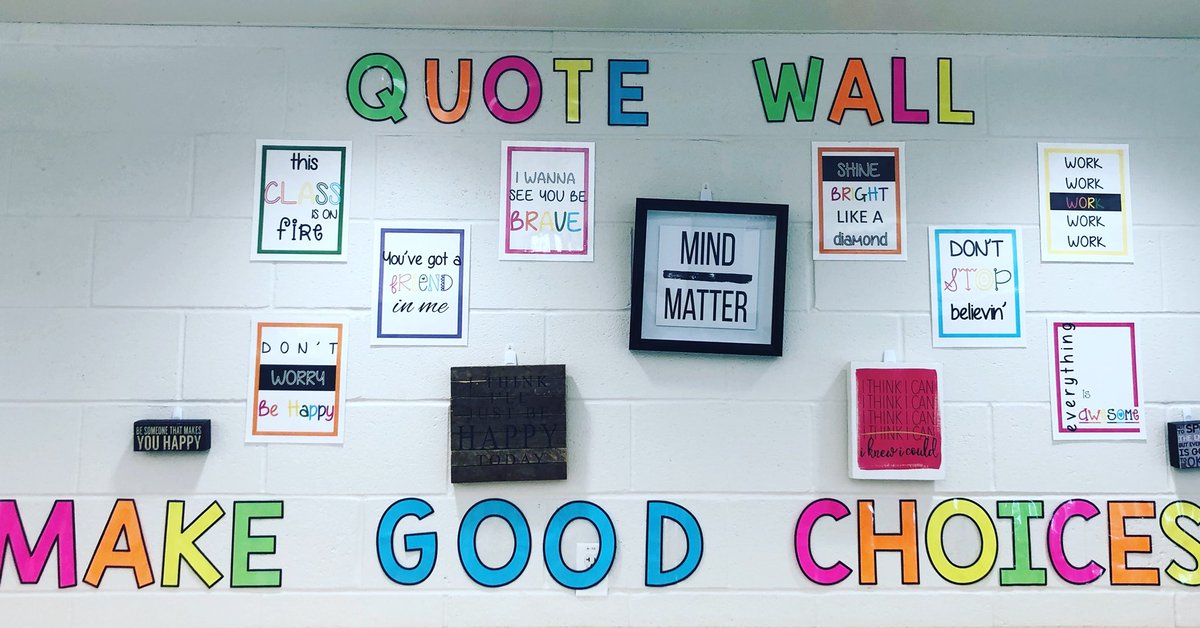 QUOTE WALL
this
CLASS
IS ON
fire
I WANNA
SEE YOU BE
BRAVE
SHINE
BRIGHT
LIKE A
diamond
WORK
WORK
WORK
WORK
WORK
You've got a
FRIEND
in me
MIND
MATTER
DON'T
STOP
believin'
DON'T
WORRY
Be Happy
everything
is
awesome
BE SOMEONE THAT MAKES
YOU HAPPY
I THINK
I'LL
JUST BE
HAPPY
TODAY
I THINK I CAN
I THINK I CAN
I THINK I CAN
I THINK I CAN
i knew i could
MAKE GOOD CHOICES